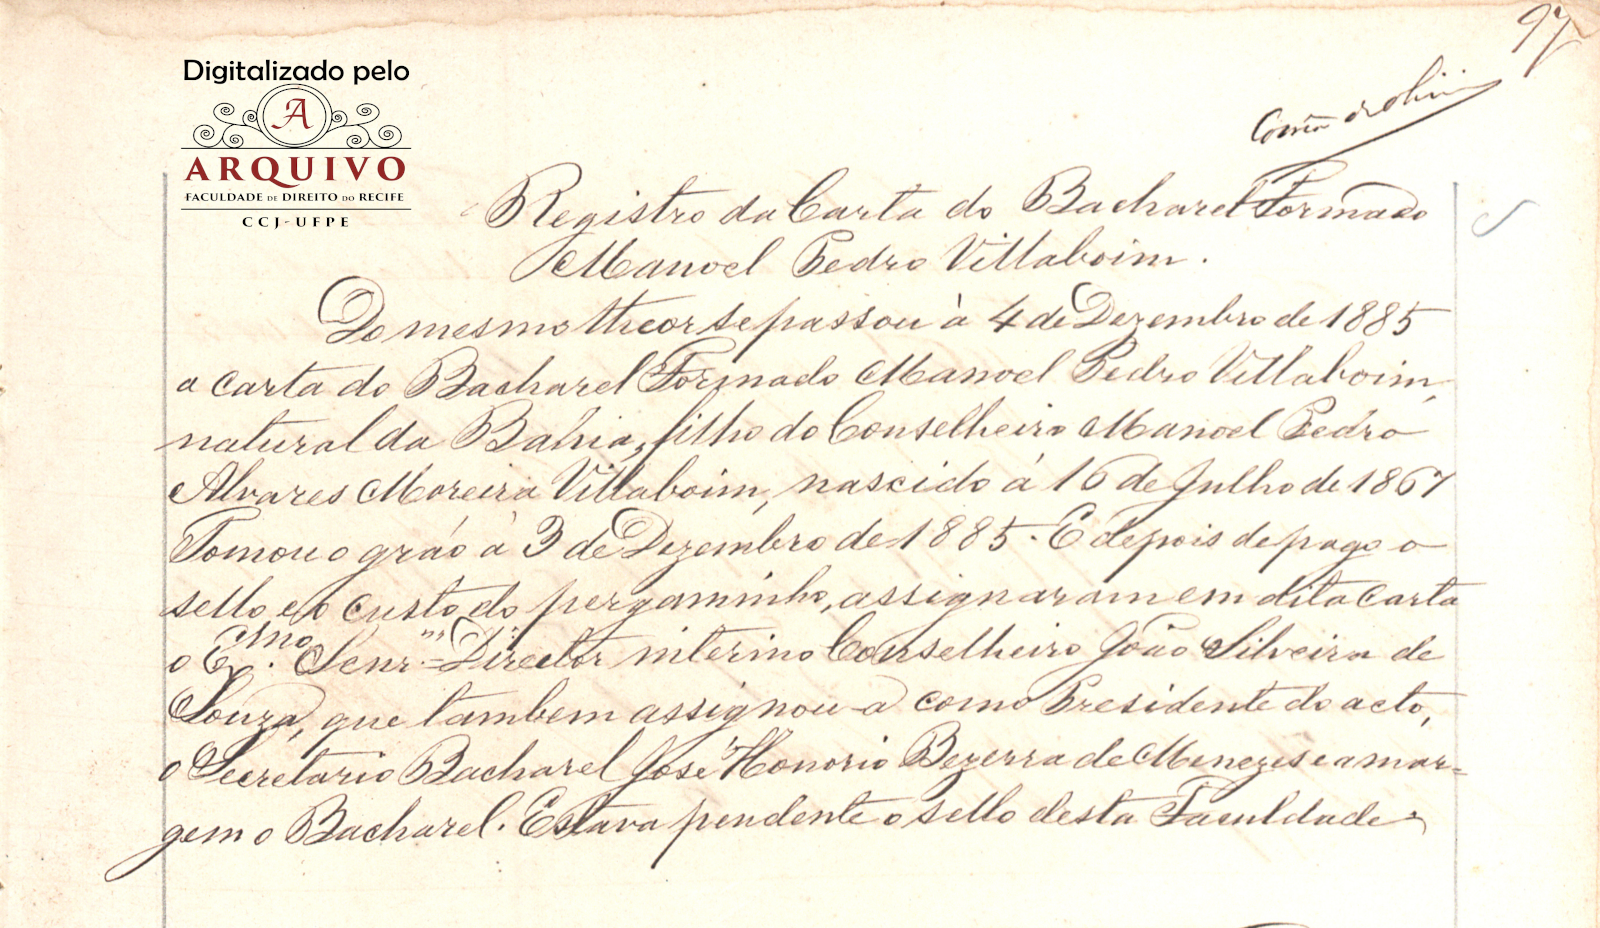 97
Digitalizado pelo
A
ARQUIVO
FACULDADE DE DIREITO DO RECIFE
CCJ-UFPE
Registro da Carta do Bacharel Formado
Manoel Pedro Villaboim.
Do mesmo theor se passou à 4 de Dezembro de 1885
a carta do Bacharel Formado Manoel Pedro Villaboim,
natural da Bahia, filho do Conselheiro Manoel Pedro
Alvares Moreira Villaboim, nascido á 16 de Julho de 1867
Tomou o gráo à 3 de Dezembro de 1885. E depois de pago o
sello e o custo do pergaminho, assignaram em dita carta
o Exmo. Senr. Director interino Conselheiro João Silveira de
Souza, que tambem assignou-a como Presidente do acto,
o Secretario Bacharel José Honorio Bezerra de Menezes e a mar=
gem o Bacharel. Estava pendente o sello desta Faculdade.